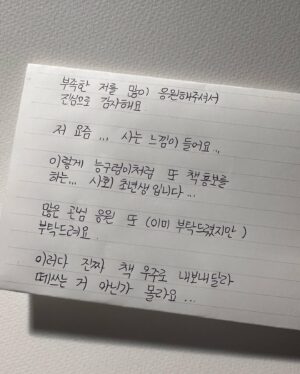 부족한 저를 많이 응원해주셔서
진심으로 감사해요
저 요즘 ... 사는 느낌이 들어요 ..
이렇게 능구렁이처럼 또 책홍보를
하는... 사회 초년생입니다 ...
많은 관심 응원 또 (이미 부탁드렸지만)
부탁드려요 .
이러다 진짜 책 우주로 내보내달라
떼쓰는 거 아닌가 몰라요 ...